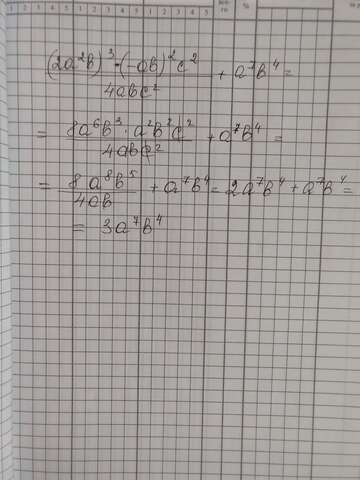 (2a²b)³·(-ab)²c²/4abc² + a⁷b⁴ =
= 8a⁶b³·a²b²c²/4abc² + a⁷b⁴ =
= 8a⁸b⁵/4ab + a⁷b⁴ = 2a⁷b⁴ + a⁷b⁴ =
= 3a⁷b⁴